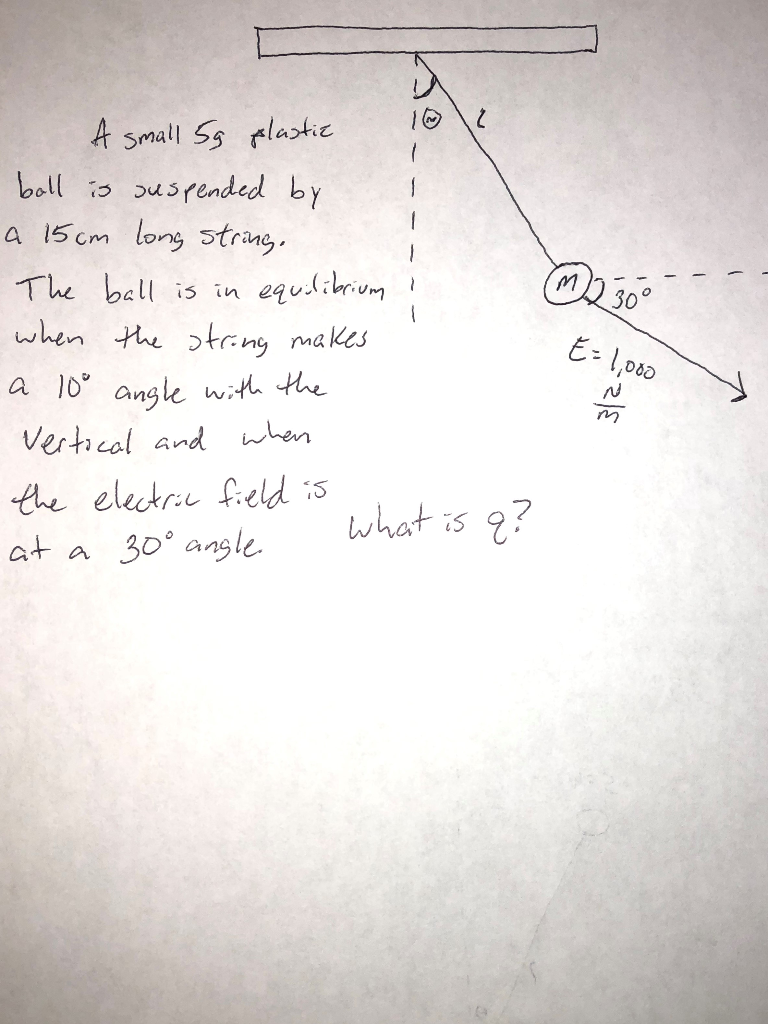 A small 5g plastic
ball is suspended by
a 15cm long string.
The ball is in equilibrium
when the string makes
a 10° angle with the
Vertical and when
the electric field is
at a 30° angle.
What is q?
Θ
l
M
30°
E = 1,000
N
m